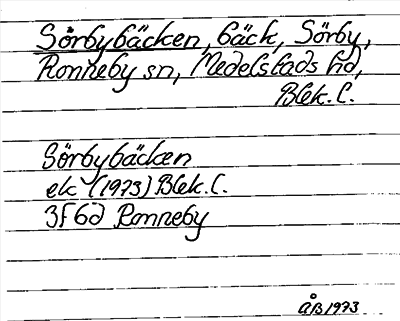 Sörbybäcken, bäck, Sörby,
Ronneby sn, Medelstads hd,
Blek. l.
Sörbybäcken
ek (1973) Blek. l.
3f 6d Ronneby
ÅB 1973